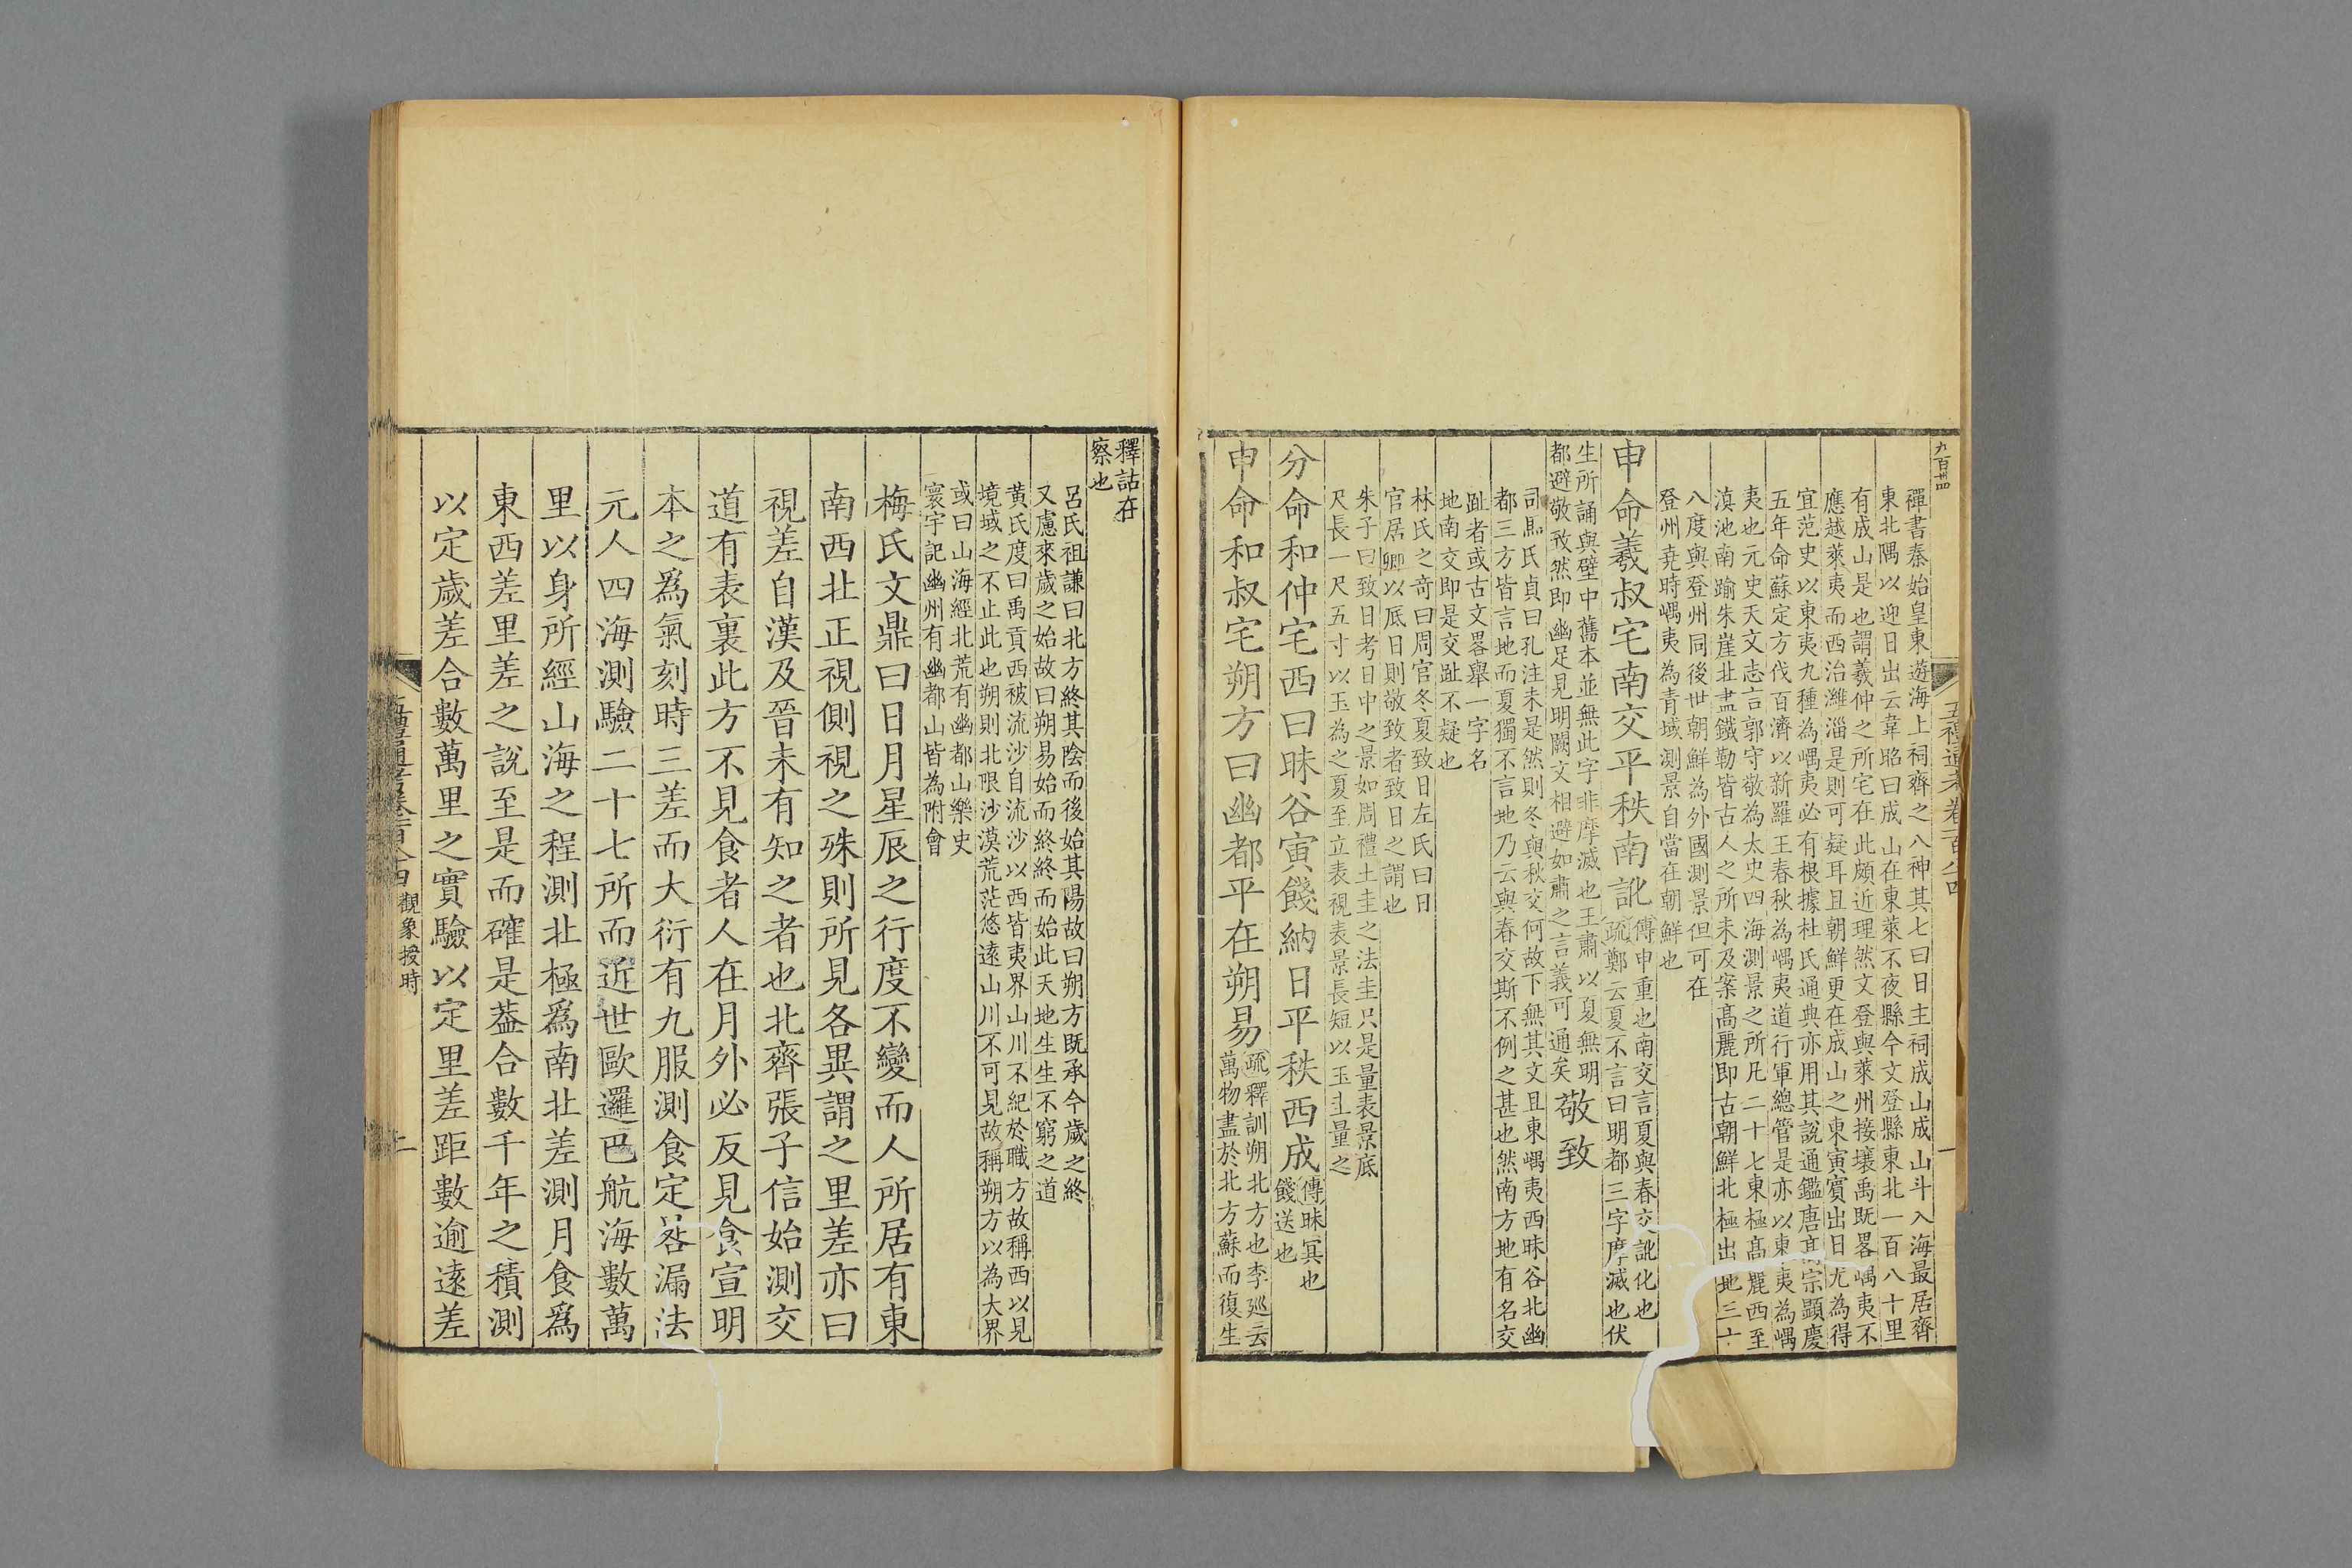 九百卌四
禪書秦始皇東遊海上祠齊之八神其七曰日主祠成山成山斗入海最居齊
東北隅以迎日出云韋昭曰成山在東萊不夜縣今文登縣東北一百八十里
有成山是也謂羲仲之所宅在此頗近理然文登與萊州接壤禹既畧嵎夷不
應越萊夷而西治濰淄是則可疑耳且朝鮮更在成山之東寅賓出日尤為得
宜范史以東夷九種為嵎夷必有根據杜氏通典亦用其說通鑑唐高宗顯慶
五年命蘇定方伐百濟以新羅王春秋為嵎夷道行軍總管是亦以東夷為嵎
夷也元史天文志言郭守敬為太史四海測景之所凡二十七東極高麗西至
滇池南踰朱崖北盡鐵勒皆古人之所未及案高麗即古朝鮮北極出地三十
八度與登州同後世朝鮮為外國測景但可在
登州堯時嵎夷為青域測景自當在朝鮮也
申命羲叔宅南交平秩南訛
傳申重也南交言夏與春交訛化也
疏鄭云夏不言曰明都三字摩滅也伏
生所誦與壁中舊本並無此字非摩滅也王肅以夏無明
都避敬致然即幽足見明闕文相避如肅之言義可通矣
敬致
司馬氏貞曰孔注未是然則冬與秋交何故下無其文且東嵎夷西昧谷北幽
都三方皆言地而夏獨不言地乃云與春交斯不例之甚也然南方地有名交
趾者或古文畧舉一字名
地南交即是交趾不疑也
林氏之奇曰周官冬夏致日左氏曰日
官居卿以底日則敬致者致日之謂也
朱子曰致日考日中之景如周禮土圭之法圭只是量表景底
尺長一尺五寸以玉為之夏至立表視表景長短以玉圭量之
分命和仲宅西曰昧谷寅餞納日平秩西成
傳昧冥也
餞送也
申命和叔宅朔方曰幽都平在朔易
疏釋訓朔北方也李巡云
萬物盡於北方蘇而復生
釋詁在
察也
呂氏祖謙曰北方終其陰而後始其陽故曰朔方既承今歲之終
又慮來歲之始故曰朔易始而終終而始此天地生生不窮之道
黃氏度曰禹貢西被流沙自流沙以西皆夷界山川不紀於職方故稱西以見
境域之不止此也朔則北限沙漠荒茫悠遠山川不可見故稱朔方以為大界
或曰山海經北荒有幽都山樂史
寰宇記幽州有幽都山皆為附會
梅氏文鼎曰日月星辰之行度不變而人所居有東
南西北正視側視之殊則所見各異謂之里差亦曰
視差自漢及晉未有知之者也北齊張子信始測交
道有表裏此方不見食者人在月外必反見食宣明
本之爲氣刻時三差而大衍有九服測食定晷漏法
元人四海測驗二十七所而近世歐邏巴航海數萬
里以身所經山海之程測北極爲南北差測月食爲
東西差里差之說至是而確是葢合數千年之積測
以定歲差合數萬里之實驗以定里差距數逾遠差
五禮通考卷一百八十四
觀象授時